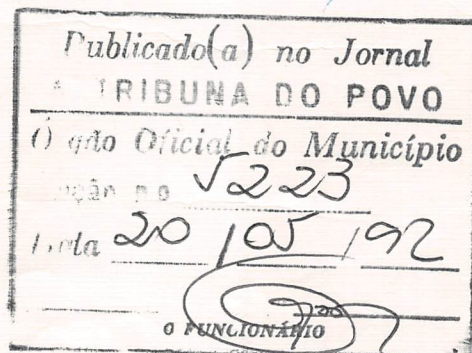 Publicado(a) no Jornal
TRIBUNA DO POVO
Oficial do Município
223
20 / 05 / 92
O FUNCIONÁRIO